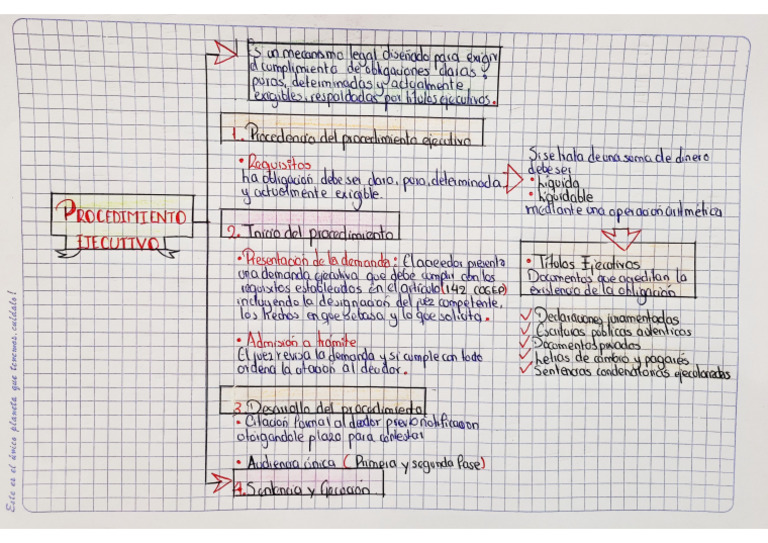 Es un mecanismo legal diseñado para exigir
el cumplimiento de obligaciones claras,
puras, determinadas y actualmente
exigibles, respaldadas por títulos ejecutivos.
1. Procedencia del procedimiento ejecutivo
• Requisitos
ha obligación debe ser clara, pura, determinada,
y actualmente exigible.
Si se trata de una suma de dinero
debe ser
• Líquida
• liquidable
mediante una operación aritmética
PROCEDIMIENTO
EJECUTIVO
2. Inicio del procedimiento
• Presentación de la demanda: El acreedor presenta
una demanda ejecutiva que debe cumplir con los
requisitos establecidos en el artículo (142 COGEP)
incluyendo la designación del juez competente,
los hechos en que se basa y lo que solicita.
• Admisión a trámite
El juez revisa la demanda y si cumple con todo
ordena la citación al deudor.
• Títulos Ejecutivos
Documentos que acreditan la
existencia de la obligación
Declaraciones juramentadas
Escrituras públicas auténticas
Documentos privados
Letras de cambio y pagarés
Sentencias condenatorias ejecutoriadas
3. Desarrollo del procedimiento
• Citación formal al deudor previo notificacion
otorgandole plazo para contestar
• Audiencia única (Primera y segunda Fase)
4. Sentencia y Ejecución
Este es el único planeta que tenemos, cuídalo!